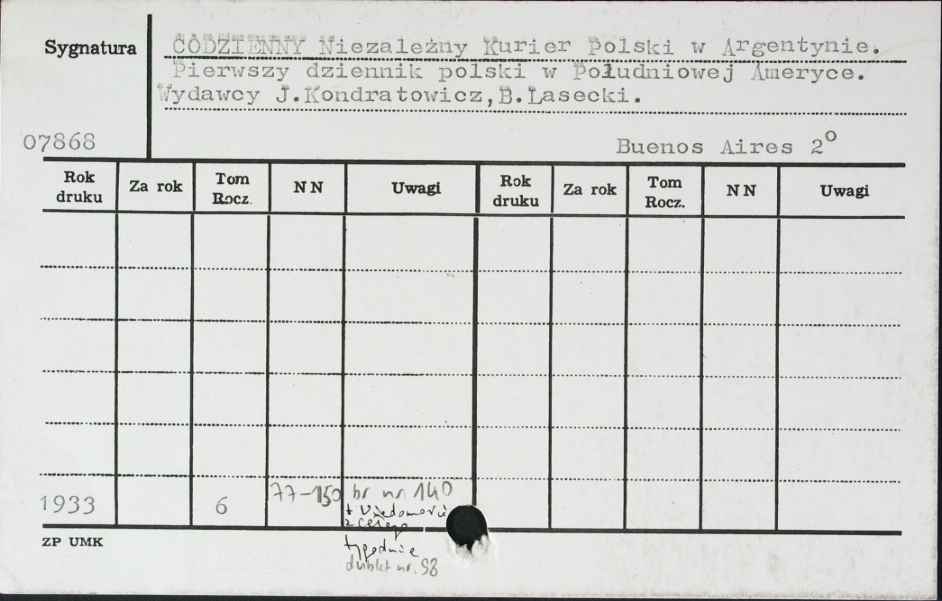 Sygnatura
CODZIENNY Niezależny Kurier Polski w Argentynie.
Pierwszy dziennik polski w Południowej Ameryce.
Wydawcy J.Kondratowicz,B.Lasecki.
07868
Buenos Aires 2°
Rok druku Za rok Tom Rocz. N N Uwagi Rok druku Za rok Tom Rocz. N N Uwagi
1933 6 77-150 br nr. 140
+ Wiadomości
z całego
tygodnia
dublet nr. 98
ZP UMK